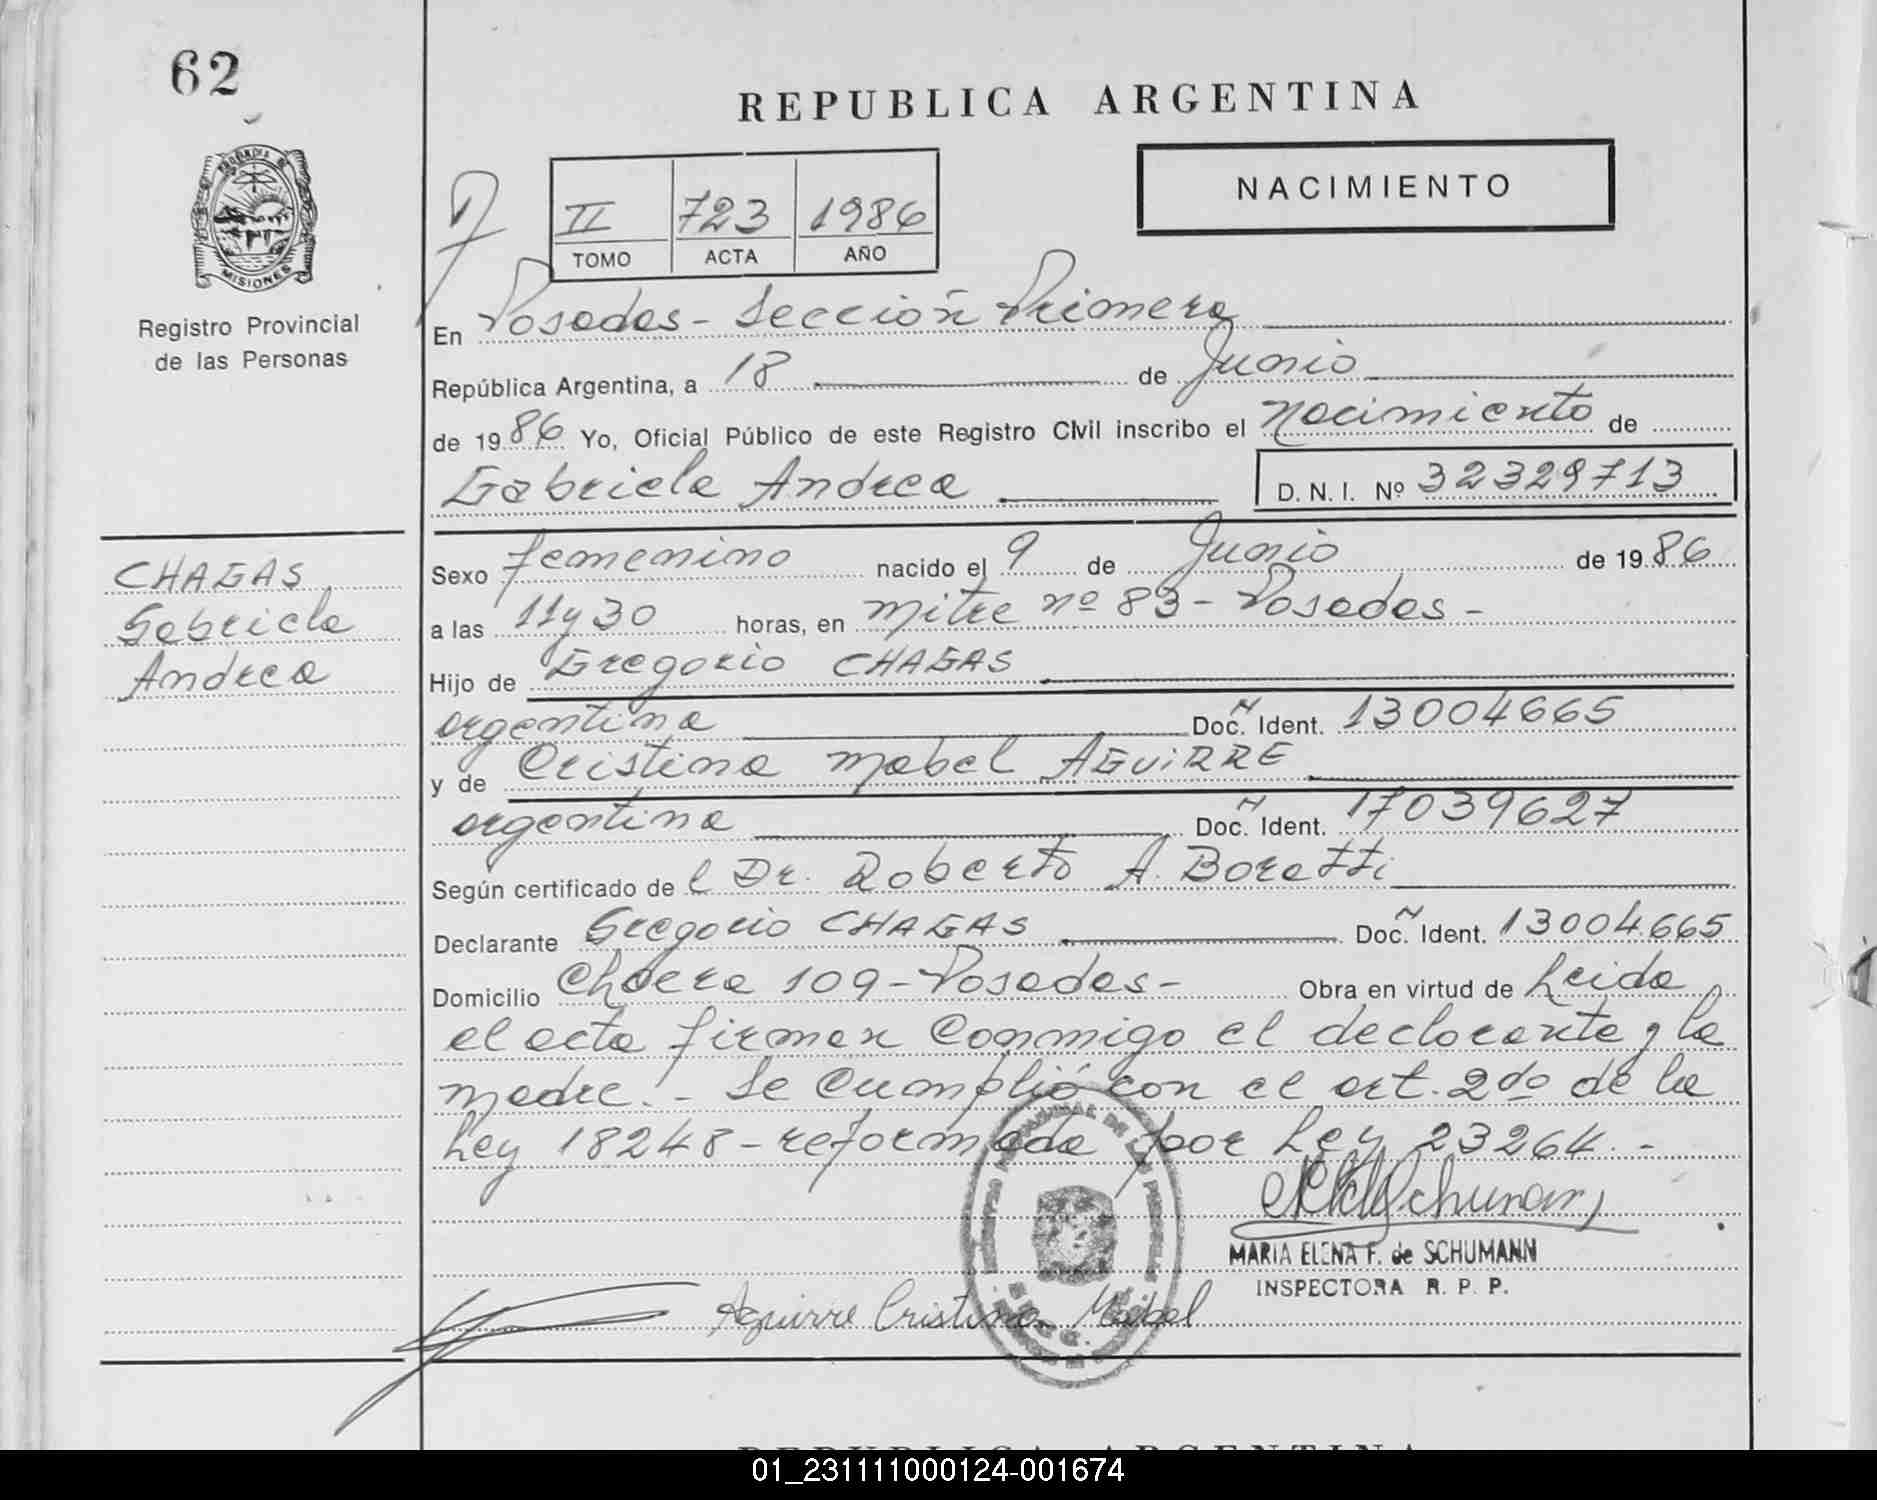 62
REPUBLICA ARGENTINA
NACIMIENTO
II 723 1986
TOMO ACTA AÑO
MISIONES
Registro Provincial
de las Personas
En Posadas - Sección Primera
República Argentina, a 18 de Junio
de 1986 Yo, Oficial Público de este Registro Civil inscribo el nacimiento de
Gabriela Andrea D. N. I. Nº 32329713
CHAGAS
Gabriela
Andrea
Sexo femenino nacido el 9 de Junio de 1986
a las 11 y 30 horas, en mitre nº 83 - Posadas -
Hijo de Gregorio CHAGAS
argentina Doc. Ident. 13004665
y de Cristina mabel AGUIRRE
argentina Doc. Ident. 17039627
Según certificado de l Dr. Roberto A. Boretti
Declarante Gregorio CHAGAS Doc. Ident. 13004665
Domicilio Chacra 109 - Posadas - Obra en virtud de Leida
el acta firman Conmigo el declarante y la
madre. - Se Cumplió con el art. 2do de la
Ley 18248 - reformada por Ley 23264. -
MARIA ELENA F. de SCHUMANN
INSPECTORA R. P. P.
Aguirre Cristina Mabel
REPUBLICA ARGENTINA
01_231111000124-001674